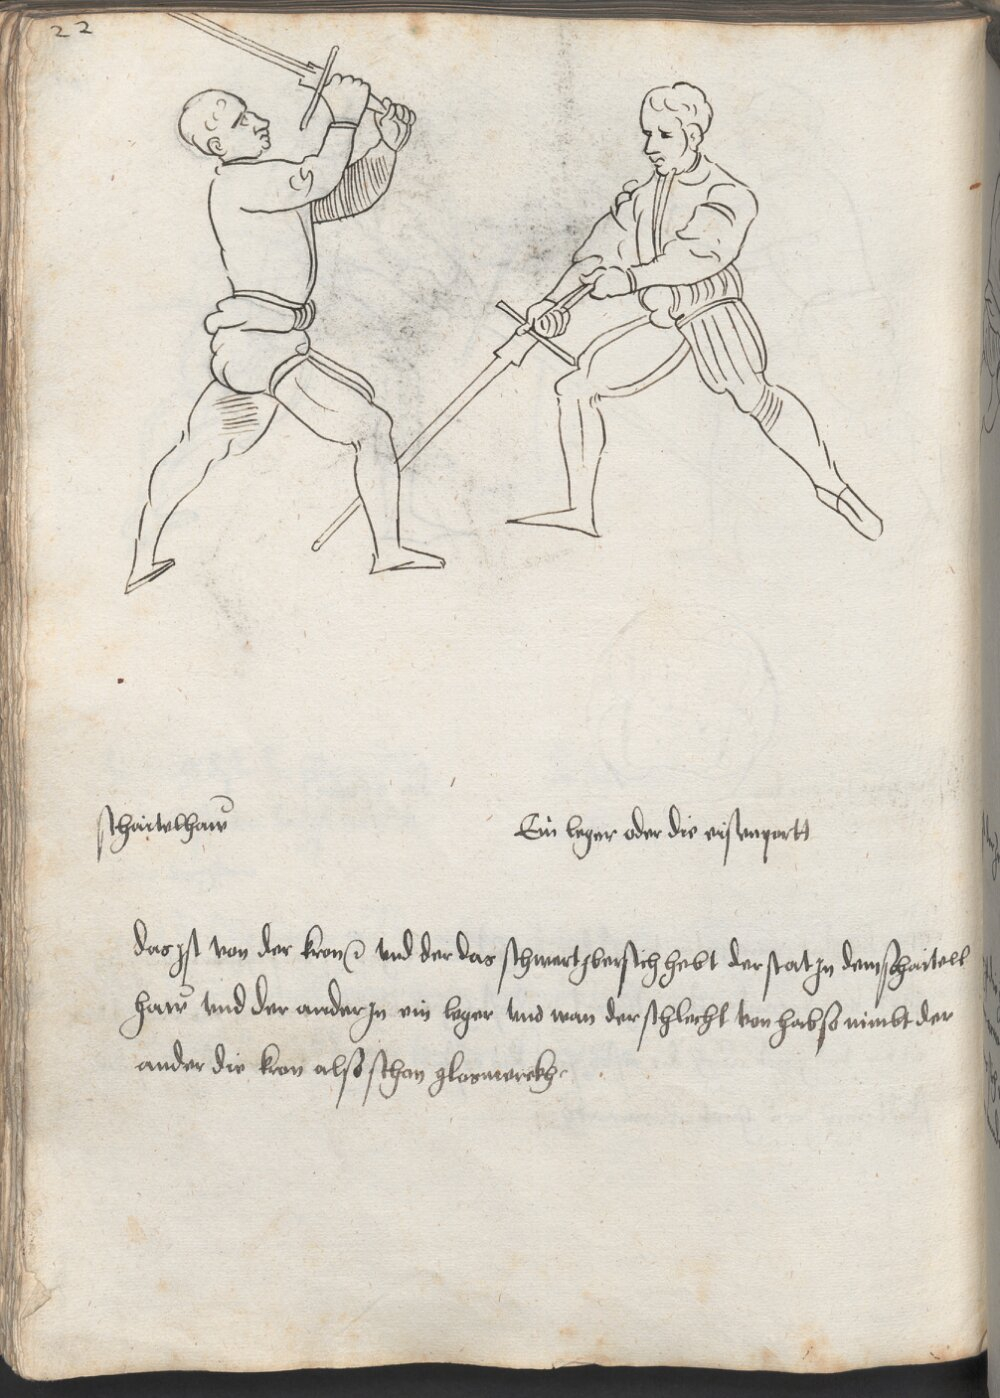 22
schaitelhaw̄
Ein leger oder die eisenportt
das jst von der kron vnd der das schwert jbersich hebt der stat jn dem schaitell
haw̄ vnd der ander jn ein leger vnd wan der schlecht von hab so nimbt der
ander die kron also schon